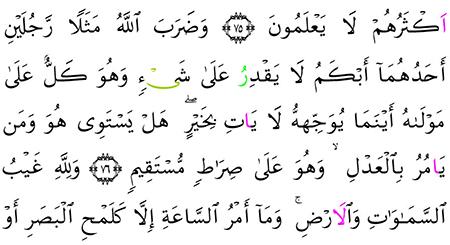 اَكۡثَرُهُمۡ لَا يَعۡلَمُونَ ۝٧٥ وَضَرَبَ اَ۬للَّهُ مَثَلٗا رَّجُلَيۡنِ
أَحَدُهُمَآ أَبۡكَمُ لَا يَقۡدِرُ عَلَىٰ شَےۡءٖ وَهُوَ كَلٌّ عَلَىٰ
مَوۡلَىٰهُ أَيۡنَمَا يُوَجِّههُّ لَا يَاتِ بِخَيۡرٍ هَلۡ يَسۡتَوِى هُوَ وَمَن
يَامُرُ بِالۡعَدۡلِ ۙ وَهُوَ عَلَىٰ صِرَٰطٖ مُّسۡتَقِيمٖ ۝٧٦ وَلِلَّهِ غَيۡبُ
اُ۬لسَّمَٰوَٰتِ وَالَارۡضِ ۚ وَمَآ أَمۡرُ اُ۬لسَّاعَةِ إِلَّا كَلَمۡحِ اِ۬لۡبَصَرِ أَوۡ